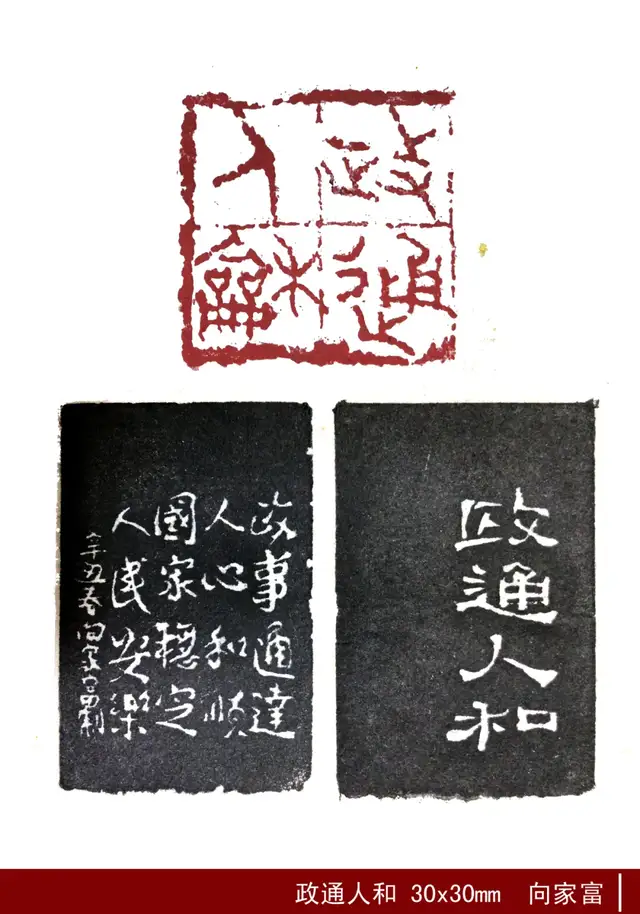 政通
人龢
政通人和
政事通達
人心和順
國家穩定
人民安樂
辛丑春向家富刻
政通人和 30x30mm 向家富